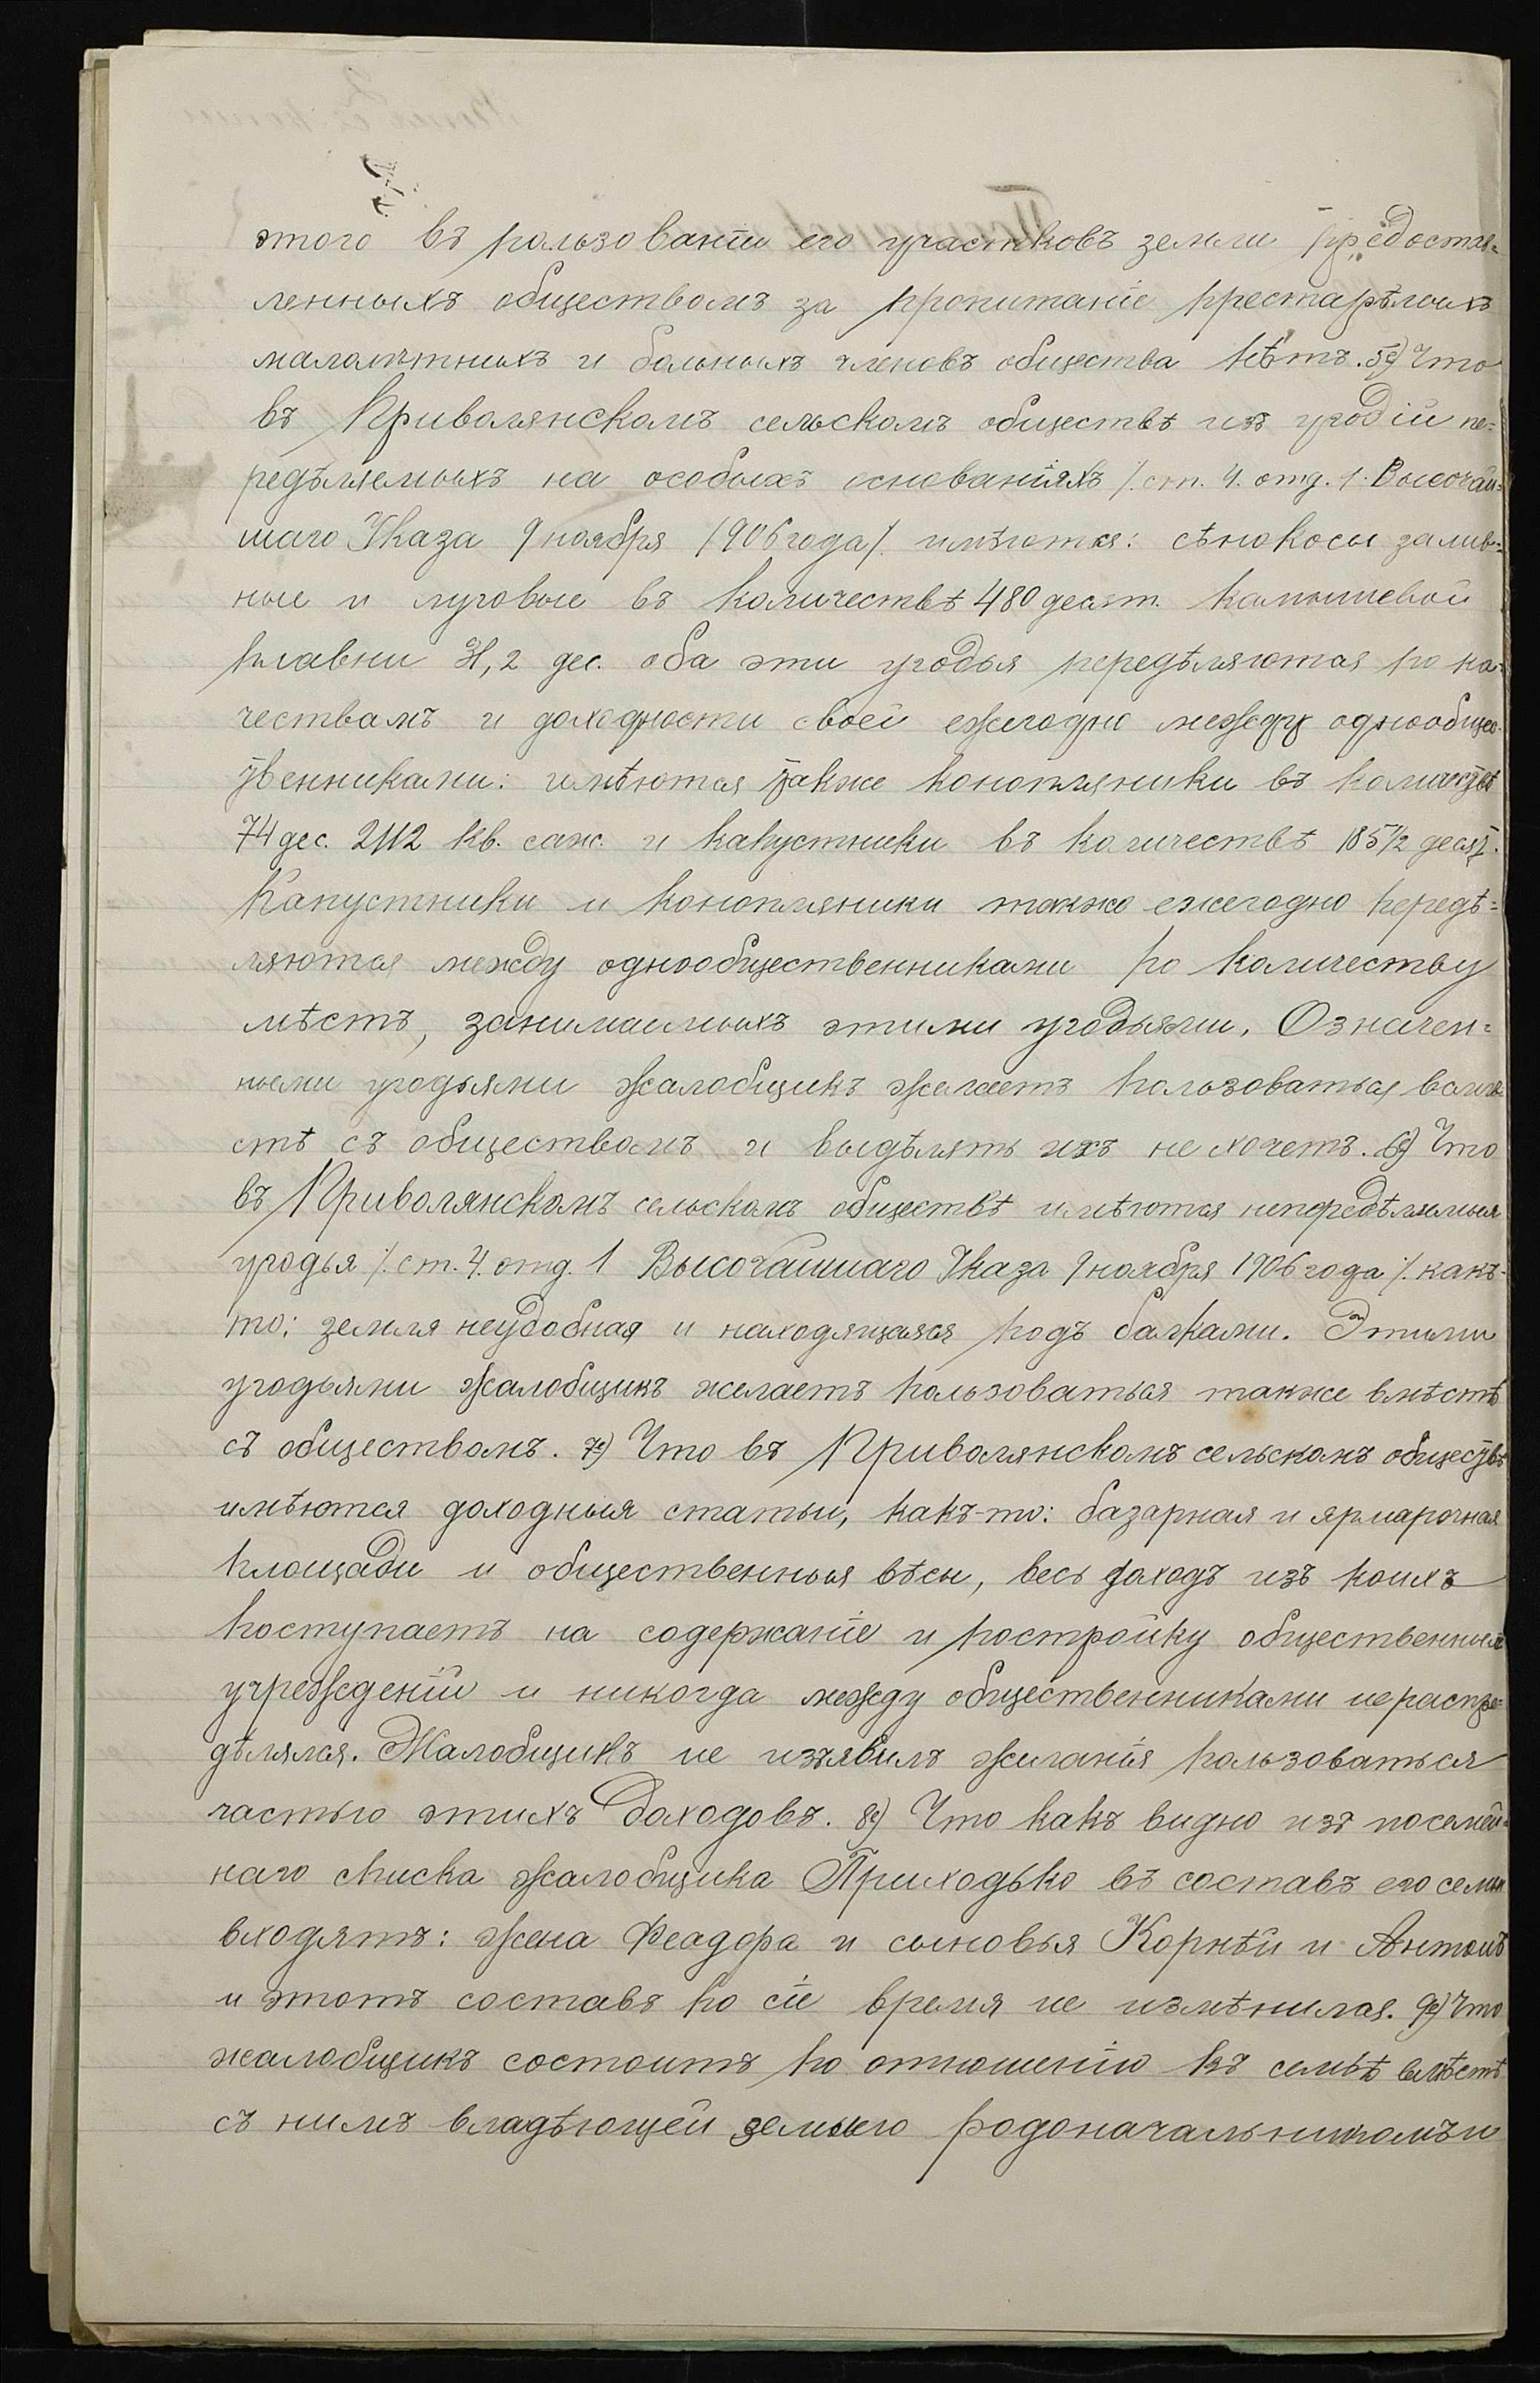 этого въ пользованіи его участковъ земли предостав=
ленныхъ обществомъ за пропитаніе престарѣлыхъ
малолѣтныхъ и больныхъ членовъ общества нѣтъ. 5е) Что
въ Криволянскомъ сельскомъ обществѣ изъ угодій пе=
редѣляемыхъ на особыхъ основаніяхъ /. ст. 4. отд. 1. Высочай=
шаго Указа 9 ноября 1906 года /. имѣются: сѣнокосы залив=
ные и луговые въ количествѣ 480 десят. камышевой
плавни 31,2 дес. оба эти угодья передѣляются по ка=
чествамъ и доходности своей ежегодно между однообщес=
твенниками: имѣются также конопляники въ количествѣ
74 дес. 2112 кв. саж. и капустники въ количествѣ 185 1/2 десят.
Капустники и конопляники также ежегодно передѣ=
ляются между однообщественниками по количеству
мѣстъ, занимаемыхъ этими угодьями. Означен=
ными угодьями жалобщикъ желаетъ пользоваться вмѣ=
стѣ съ обществомъ и выдѣлять ихъ не хочетъ. 6е) Что
въ Криволянскомъ сельскомъ обществѣ имѣются непередѣляемыя
угодья /. ст. 4. отд. 1 Высочайшаго Указа 9 ноября 1906 года /. какъ-
то: земля неудобная и находящаяся подъ балками. Этими
угодьями жалобщикъ желаетъ пользоваться также вмѣстѣ
съ обществомъ. 7е) Что въ Криволянскомъ сельскомъ обществѣ
имѣются доходныя статьи, какъ-то: базарная и ярмарочная
площади и общественныя вѣсы, весь доходъ изъ коихъ
поступаетъ на содержаніе и постройку общественныхъ
учрежденій и никогда между общественниками не распре=
дѣлялся. Жалобщикъ не изъявилъ желанія пользоваться
частью этихъ доходовъ. 8е) Что какъ видно изъ посемей=
наго списка жалобщика Приходько въ составъ его семьи
входятъ: жена Феадора и сыновья Корнѣй и Антонъ
и этотъ составъ по сіе время не измѣнился. 9е) Что
жалобщикъ состоитъ по отношенію къ семьѣ вмѣстѣ
съ нимъ владѣющей землею родоначальникомъ и